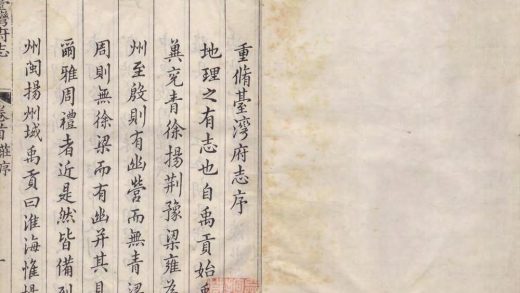 重脩臺灣府志序
地理之有志也自禹貢始禹
冀兗青徐揚荊豫梁雍為
州至殷則有幽營而無青梁
周則無徐梁而有幽并其見
爾雅周禮者近是然皆備列
州閩揚州域禹貢曰淮海惟揚
臺灣府志
卷首
序